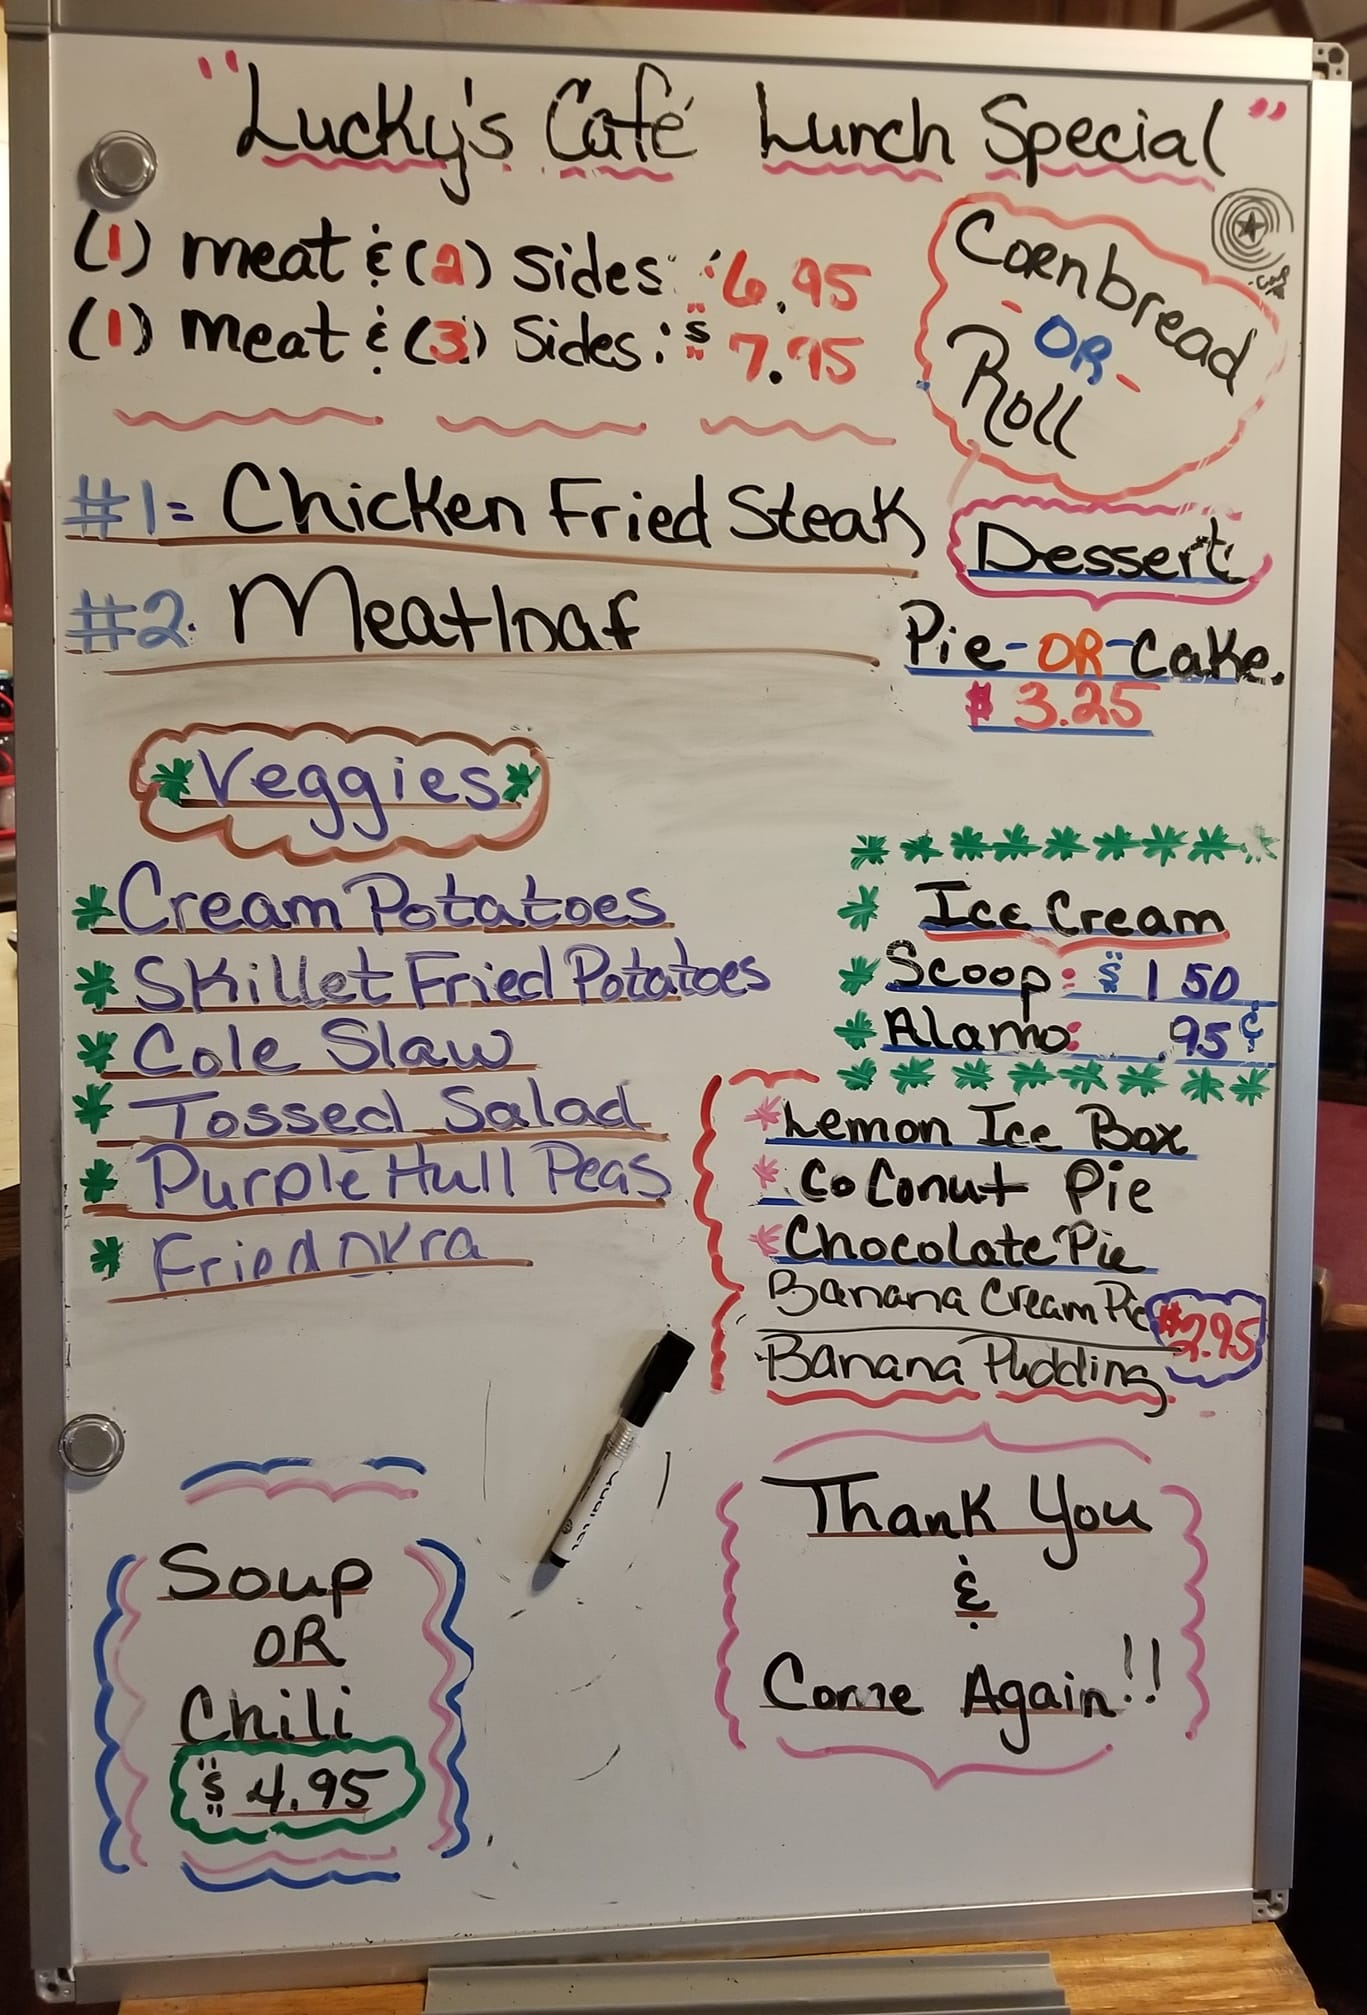 "Lucky's Café Lunch Special"
(1) meat & (2) sides: $6.95
(1) meat & (3) Sides: $7.95
Cornbread
-OR-
Roll
#1= Chicken Fried Steak
#2. Meatloaf
Dessert
Pie-OR-Cake.
$3.25
*Veggies*
*Cream Potatoes
*Skillet Fried Potatoes
*Cole Slaw
*Tossed Salad
*Purple Hull Peas
*Fried Okra
* Ice Cream
* Scoop: $1 50
* Alamo: .95¢
*Lemon Ice Box
*CoConut Pie
*Chocolate Pie
Banana Cream Pie
Banana Pudding $2.95
Soup
OR
Chili
$4.95
Thank You
&
Come Again!!